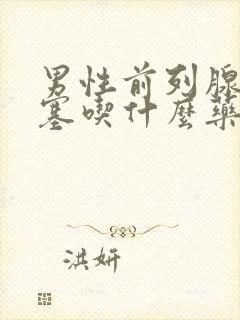 男性前列腺
塞喫什麼藥
洪妍